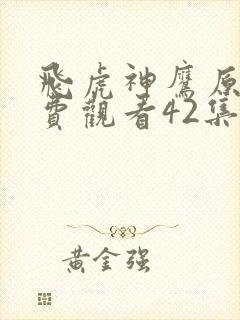 飛虎神鷹原
費觀看42集
黃金强